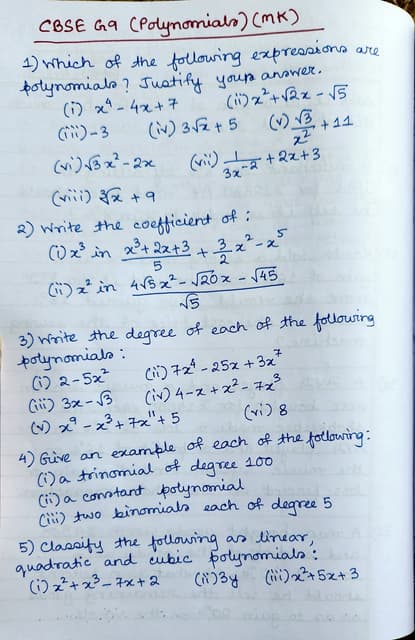 CBSE G9 (Polynomials) (MK)
1) Which of the following expressions are
polynomials? Justify your answer.
(i) x⁴ - 4x + 7 (ii) x² + √2x - √5
(iii) -3 (iv) 3√x + 5 (v) √3/x² + 11
(vi) √3 x² - 2x (vii) 1/3x⁻² + 2x + 3
(viii) ∛x + 9
2) Write the coefficient of :
(i) x³ in x³ + 2x + 3/5 + 3/2 x² - x⁵
(ii) x² in 4√5 x² - √20 x - √45/√5
3) Write the degree of each of the following
polynomials :
(i) 2 - 5x² (ii) 7x⁴ - 25x + 3x⁷
(iii) 3x - √3 (iv) 4 - x + x² - 7x³
(v) x⁹ - x³ + 7x¹¹ + 5 (vi) 8
4) Give an example of each of the following:
(i) a trinomial of degree 100
(ii) a constant polynomial
(iii) two binomials each of degree 5
5) Classify the following as linear,
quadratic and cubic polynomials :
(i) x² + x³ - 7x + 2 (ii) 3y (iii) x² + 5x + 3